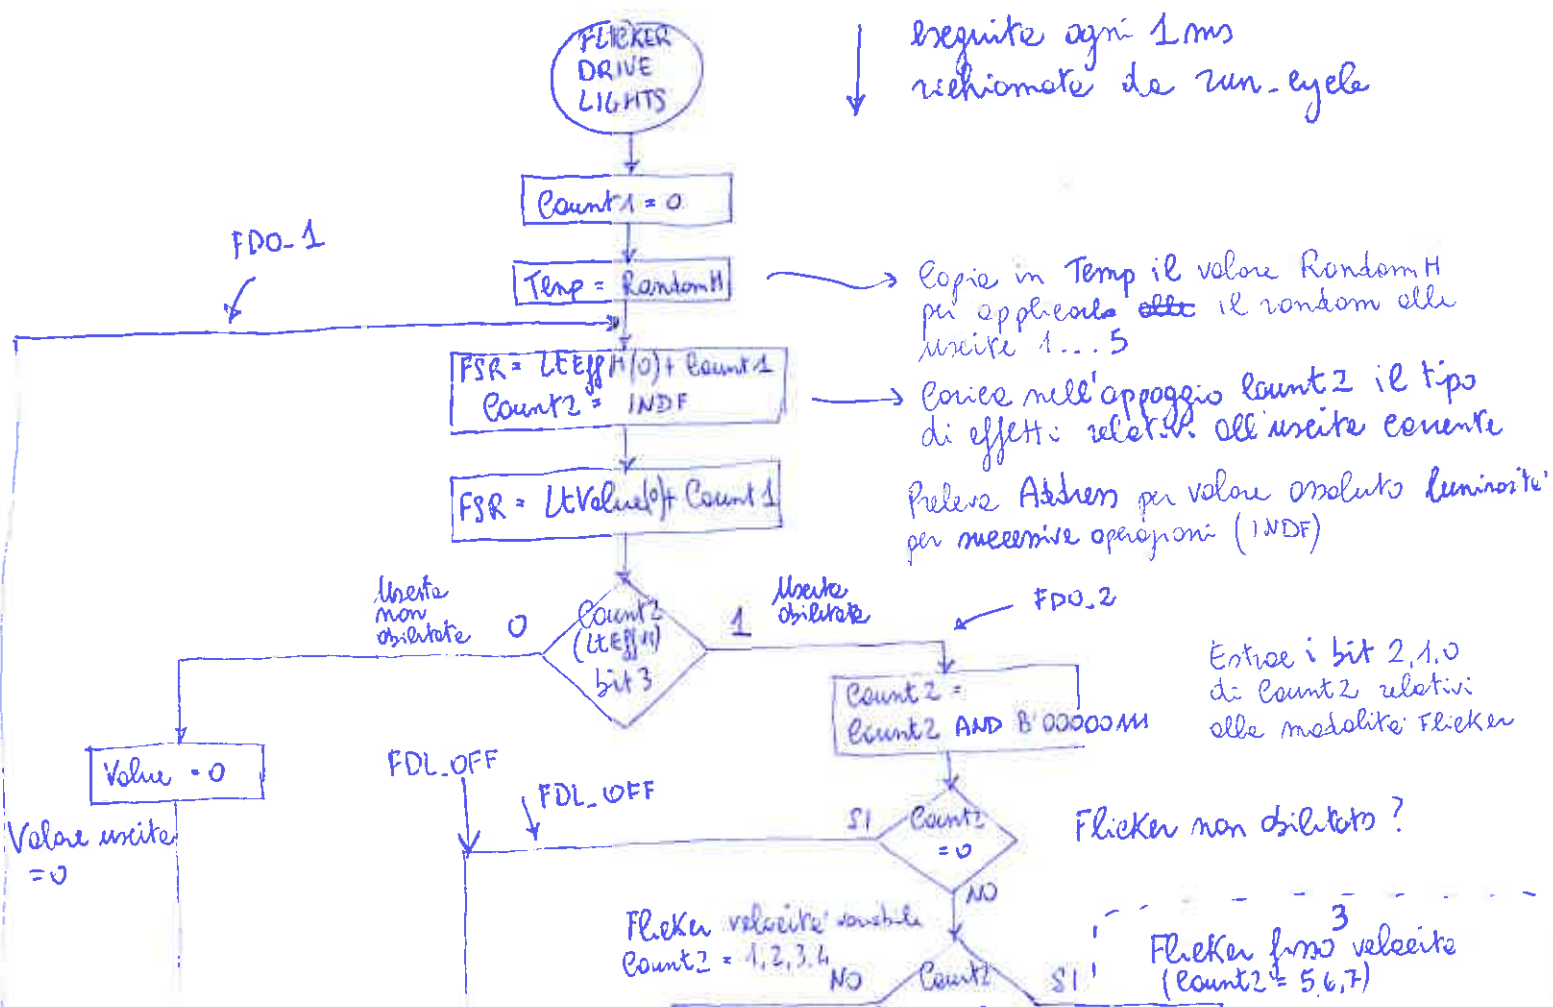 FLICKER
DRIVE
LIGHTS
eseguita ogni 1 ms
richiamata da run-cycle
Count1 = 0
FDO-1
Temp = RandomH
Copia in Temp il valore RandomH
per applicare il random alle
uscite 1...5
FSR = LtEffH(0) + Count1
Count2 = INDF
Carica nell'appoggio Count2 il tipo
di effetti relativi all'uscita corrente
FSR = LtValue(0) + Count1
Preleva Address per valore assoluto luminosita'
per successive operazioni (INDF)
Uscita
non
abilitata
0
Count2
(LtEffH)
bit 3
1
Uscita
abilitata
FDO_2
Count2 =
Count2 AND B'00000111
Estrae i bit 2,1,0
di Count2 relativi
alla modalita' Flicker
Value = 0
FDL_OFF
FDL_OFF
Valore uscita
= 0
SI
Count2
= 0
Flicker non abilitato?
NO
Flicker velocita' variabile
Count2 = 1,2,3,4
NO
Count2
SI
3
Flicker fisso velocita
(Count2 = 5,6,7)